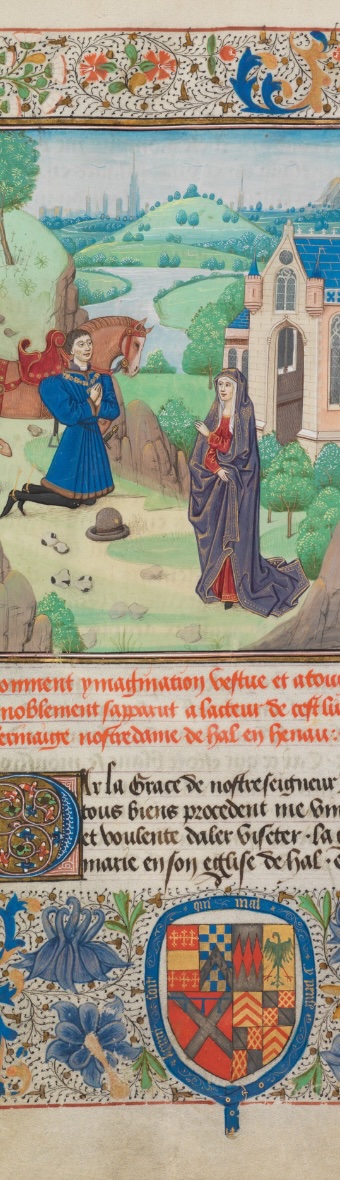 omment ymagination vestue et atour
noblement sapparut a lacteur de cest liu
ermaige nostre dame de hal en henau.
Par la Grace de nostre seigneur
tous biens procedent me vin
et voulente daler viseter. la
marie en son eglise de hal. e
qui mal y pense